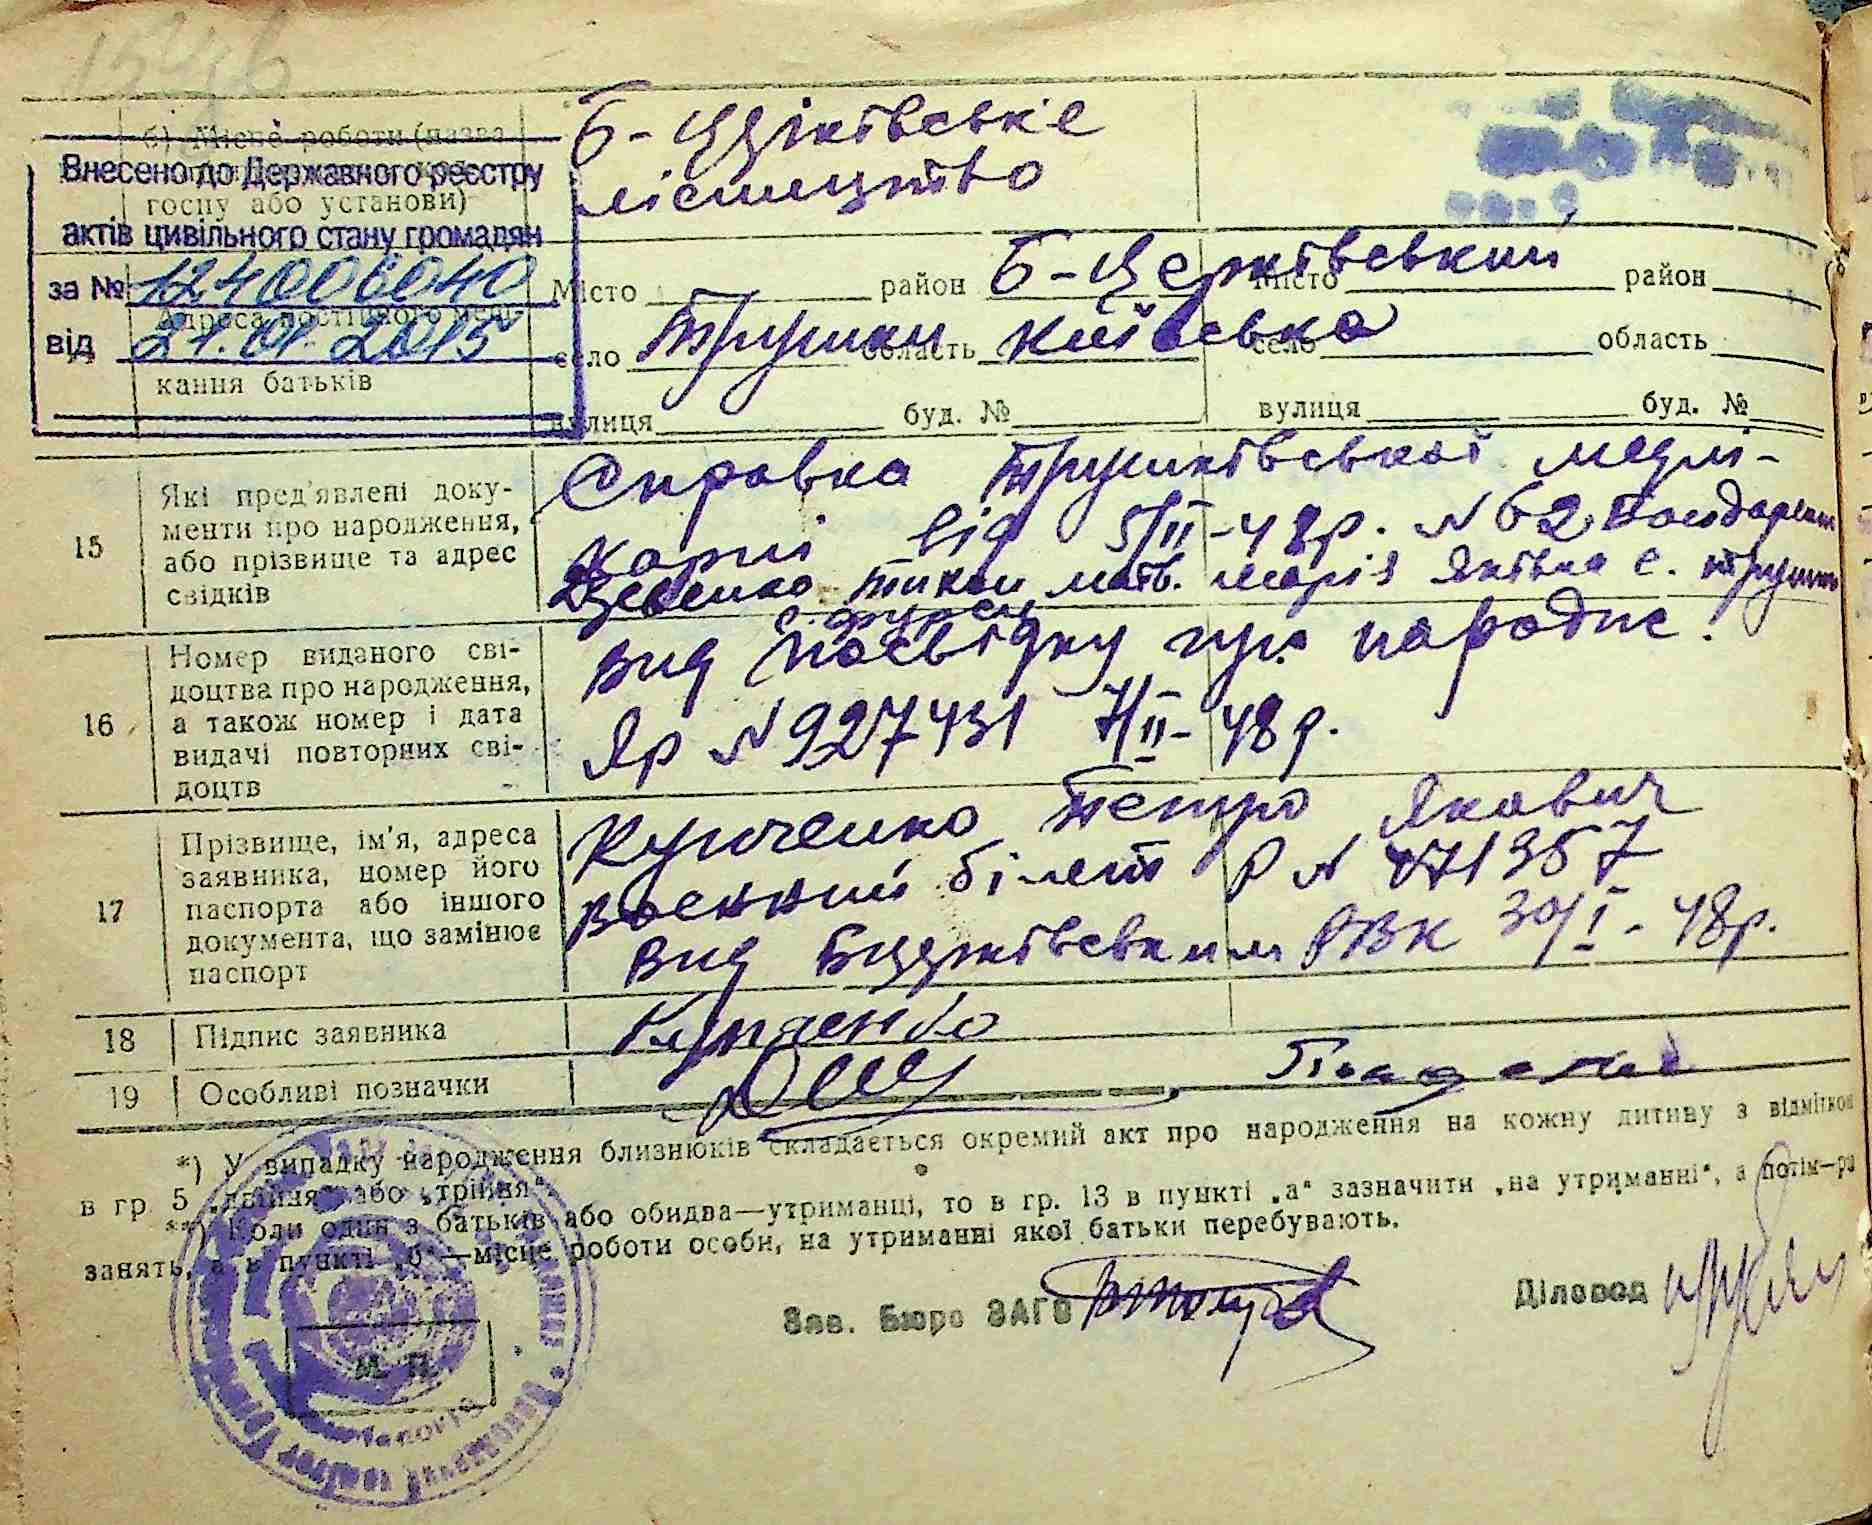 б) Місце роботи (назва
госпу або установи)
Б-Церківське
лісництво
Внесено до Державного реєстру
актів цивільного стану громадян
за № 124006040
від 21.01.2015
Адреса постійного меш-
кання батьків
Місто район Б-Церківський
село Трушки область Київська
вулиця буд. №
Місто район
село область
вулиця буд. №
15
Які пред'явлені доку-
менти про народження,
або прізвище та адрес
свідків
Справка Трушківської медлі-
карні від 5/II-48р. № 62
Шевенко Марія Яківна с. Трушки
16
Номер виданого сві-
доцтва про народження,
а також номер і дата
видачі повторних сві-
доцтв
вид посвідку про народж.
Яр № 927431 7/II-48р.
17
Прізвище, ім'я, адреса
заявника, номер його
паспорта або іншого
документа, що замінює
паспорт
Купченко Петро Якович
военний білет Р № 471357
вид Бцерківським РВК 30/I-48р.
18 Підпис заявника Купченко
19 Особливі позначки
*) У випадку народження близнюків складається окремий акт про народження на кожну дитину з відміткою
в гр 5 „двійня" або „трійня".
**) Коли один з батьків або обидва—утриманці, то в гр. 13 в пункті „а" зазначити „на утриманні", а потім—ро
занять, а в пункті „б"—місце роботи особи, на утриманні якої батьки перебувають.
Зав. Бюро ЗАГС
Діловод
М. П.